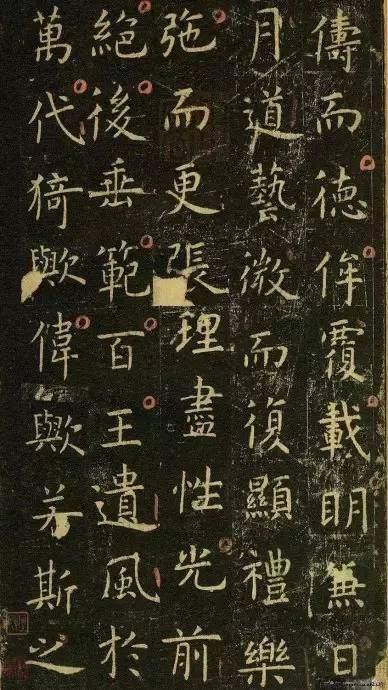 儔而德侔覆載明兼日
月道藝微而復顯禮樂
弛而更張理盡性光前
絕後垂範百王遺風於
萬代猗歟偉歟若斯之